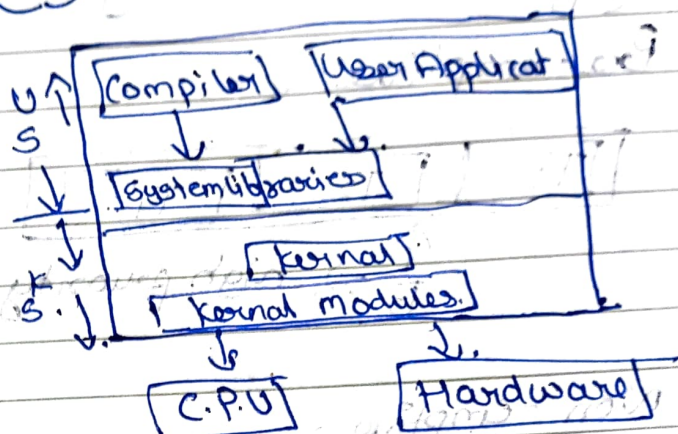 Compiler User Applicat
U
S
System libraries
Kernal
K
S.
Kernal Modules.
C.P.U Hardware